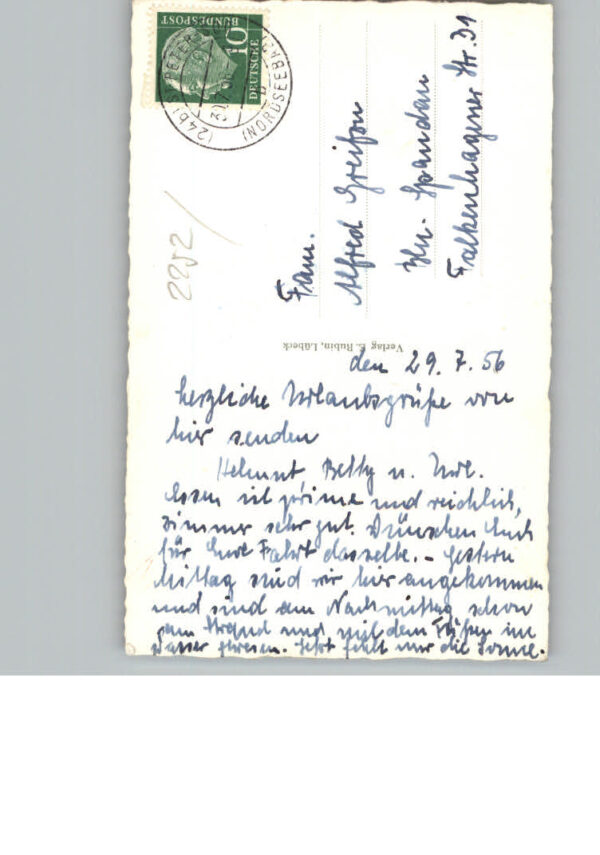 DEUTSCHE
BUNDESPOST
10
(24b)
PETER
(NORDSEEBAD)
2252
Fam.
Alfred Greifon
Bln. Spandau
Falkenhagener Str. 31
Verlag E. Rubin, Lübeck
den 29.7.56
herzliche Urlaubsgrüße von
hier senden
Helmut, Betty u. Uwe.
Essen ist prima und reichlich,
Zimmer sehr gut. Wünschen Euch
für Eure Fahrt dasselbe. – Gestern
Mittag sind wir hier angekommen
und sind am Nachmittag schon
am Strand und mit den Füßen im
Wasser gewesen. Jetzt fehlt nur die Sonne.